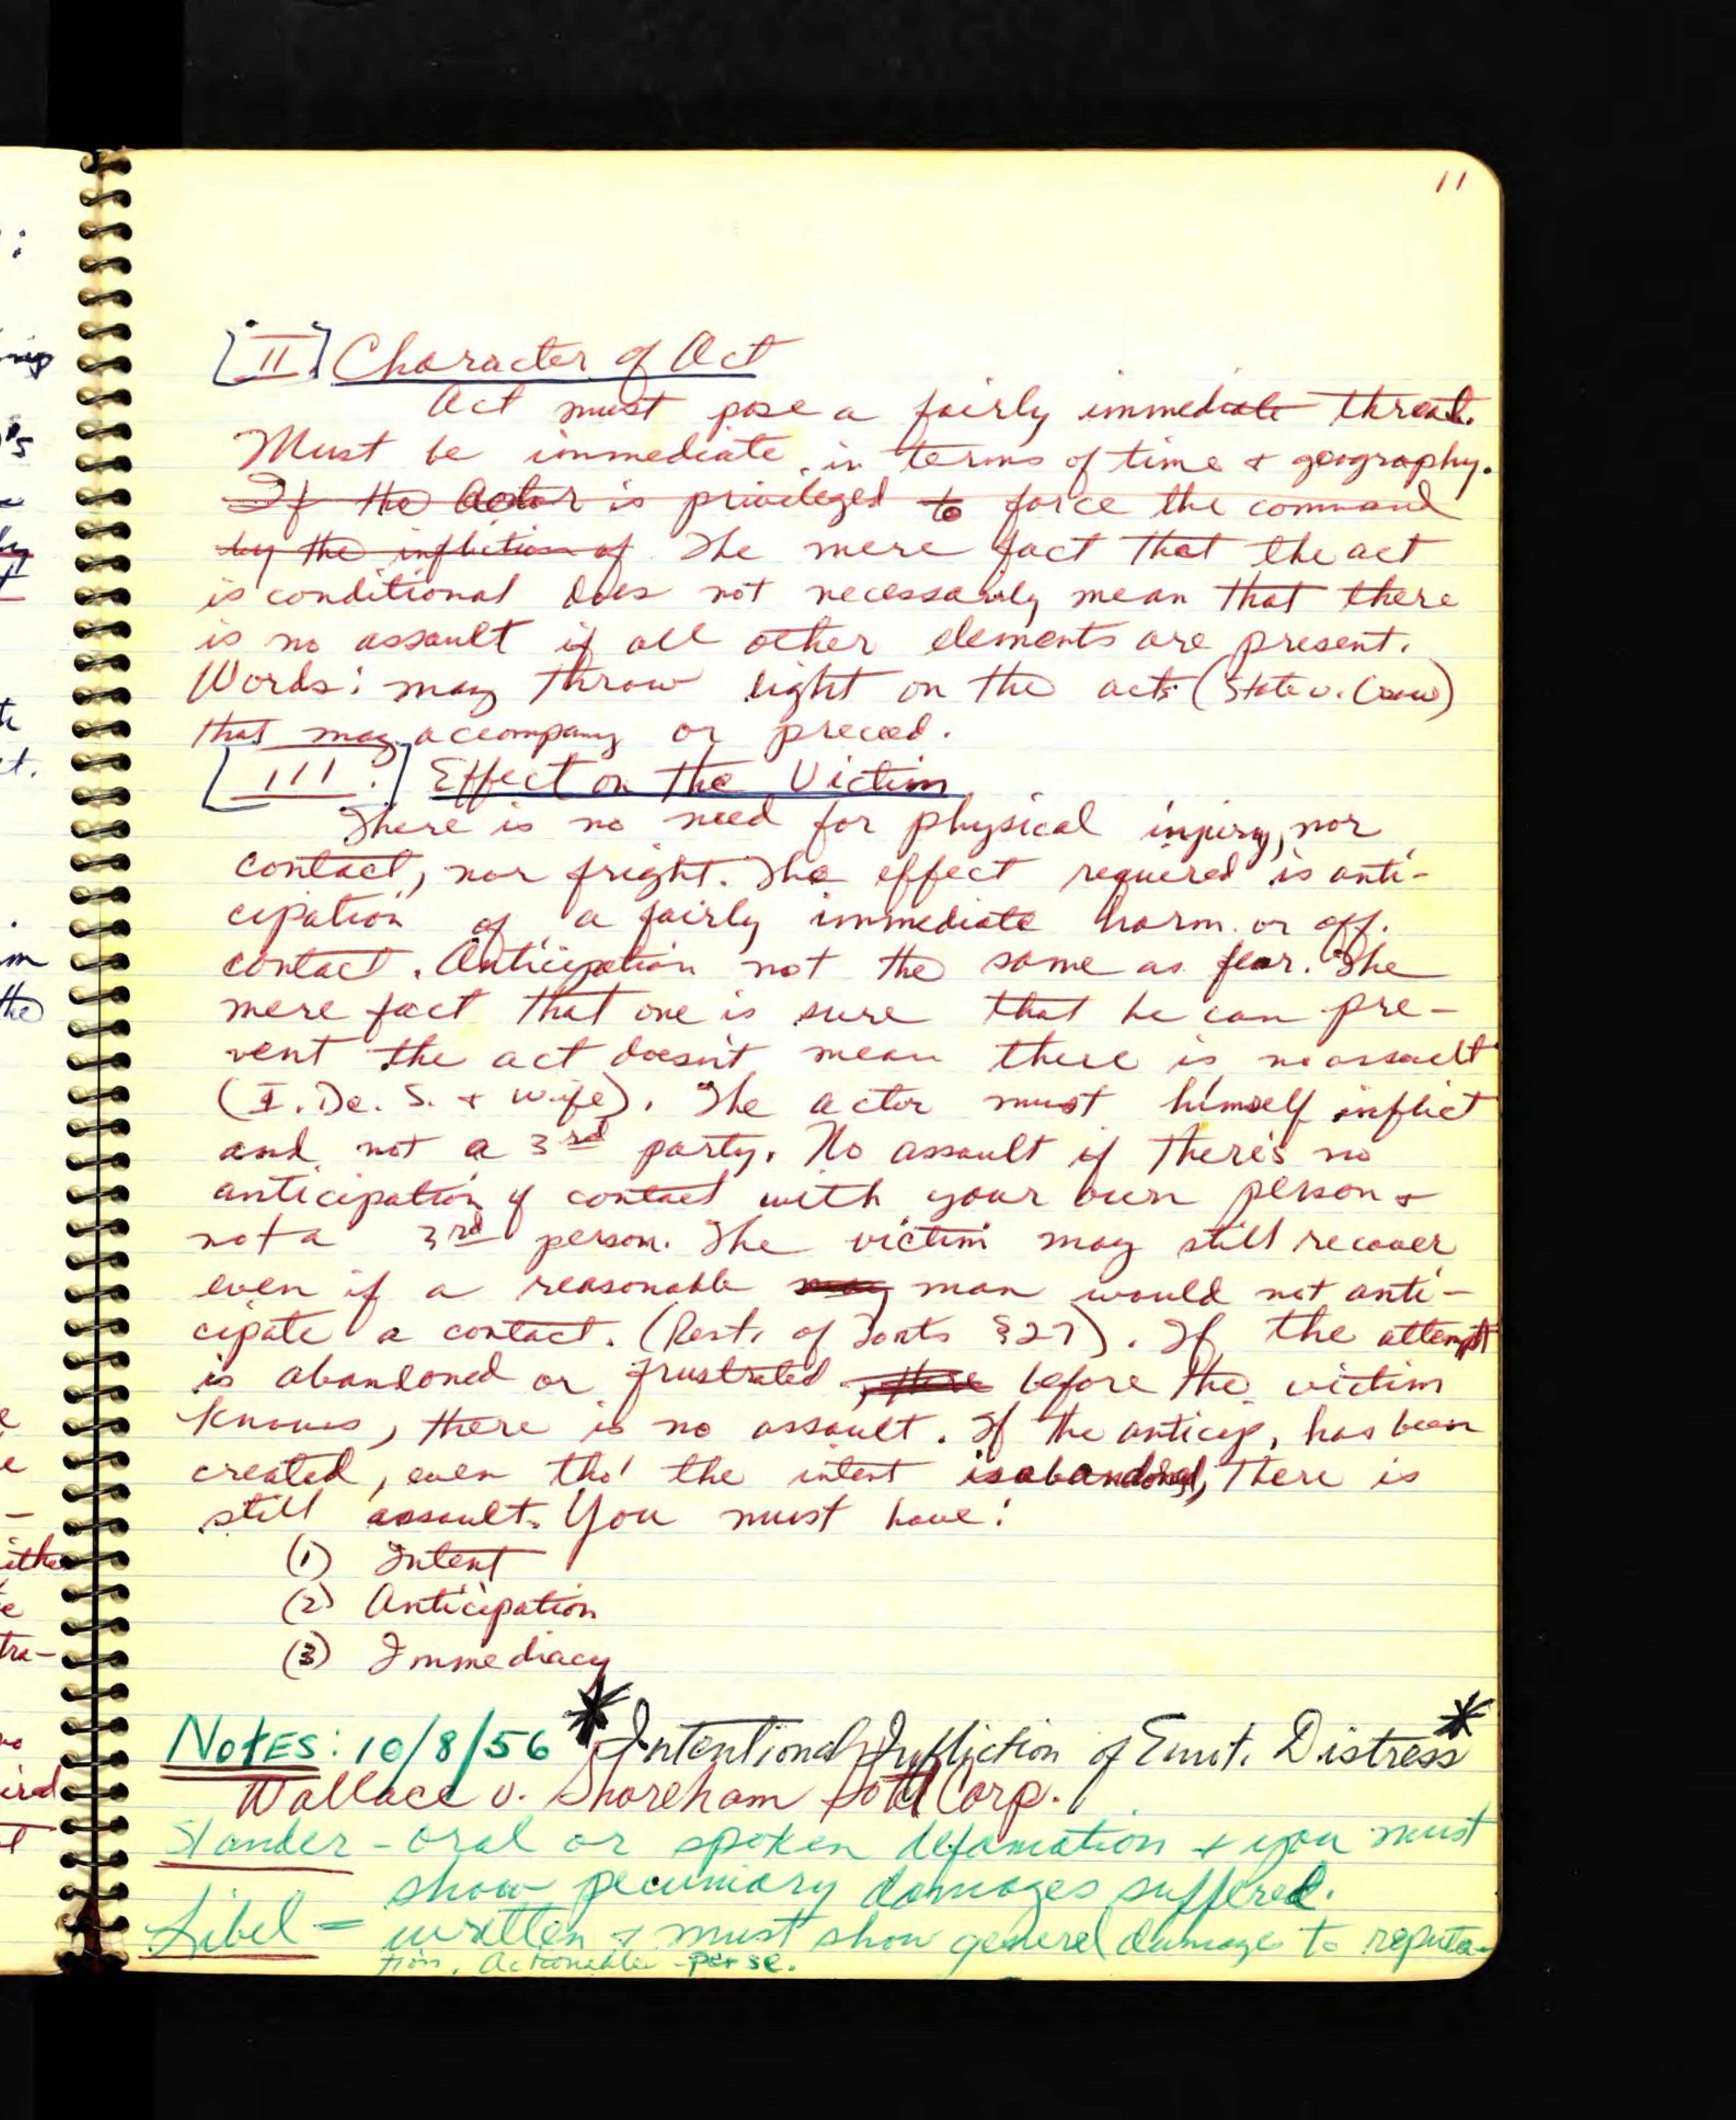 11
[II.] Character of Act
Act must pose a fairly immediate threat.
Must be immediate in terms of time & geography.
If the Actor is privileged to force the command
by the infliction of The mere fact that the act
is conditional does not necessarily mean that there
is no assault if all other elements are present.
Words: may throw light on the acts (State v. Crow)
that may accompany or preceed.
[III.] Effect on the Victim
There is no need for physical injury, nor
contact, nor fright. The effect required is anti-
cipation of a fairly immediate harm. or off.
contact. Anticipation not the same as fear. The
mere fact that one is sure that he can pre-
vent the act doesn't mean there is no assault
(I. De. S. & Wife). The actor must himself inflict
and not a 3rd party. No assault if there's no
anticipation of contact with your own person &
not a 3rd person. The victim may still recover
even if a reasonable man would not anti-
cipate a contact. (Rest. of Torts §27). If the attempt
is abandoned or frustrated, there before the victim
knows, there is no assault. If the anticip. has been
created, even tho' the intent is abandoned, there is
still assault. You must have:
(1) Intent
(2) Anticipation
(3) Immediacy
NOTES: 10/8/56 * Intentional Infliction of Emot. Distress *
Wallace v. Shoreham Hotel Corp.
Slander - oral or spoken defamation & you must
show pecuniary damages suffered.
Libel = written & must show general damage to reputa-
tion. Actionable per se.